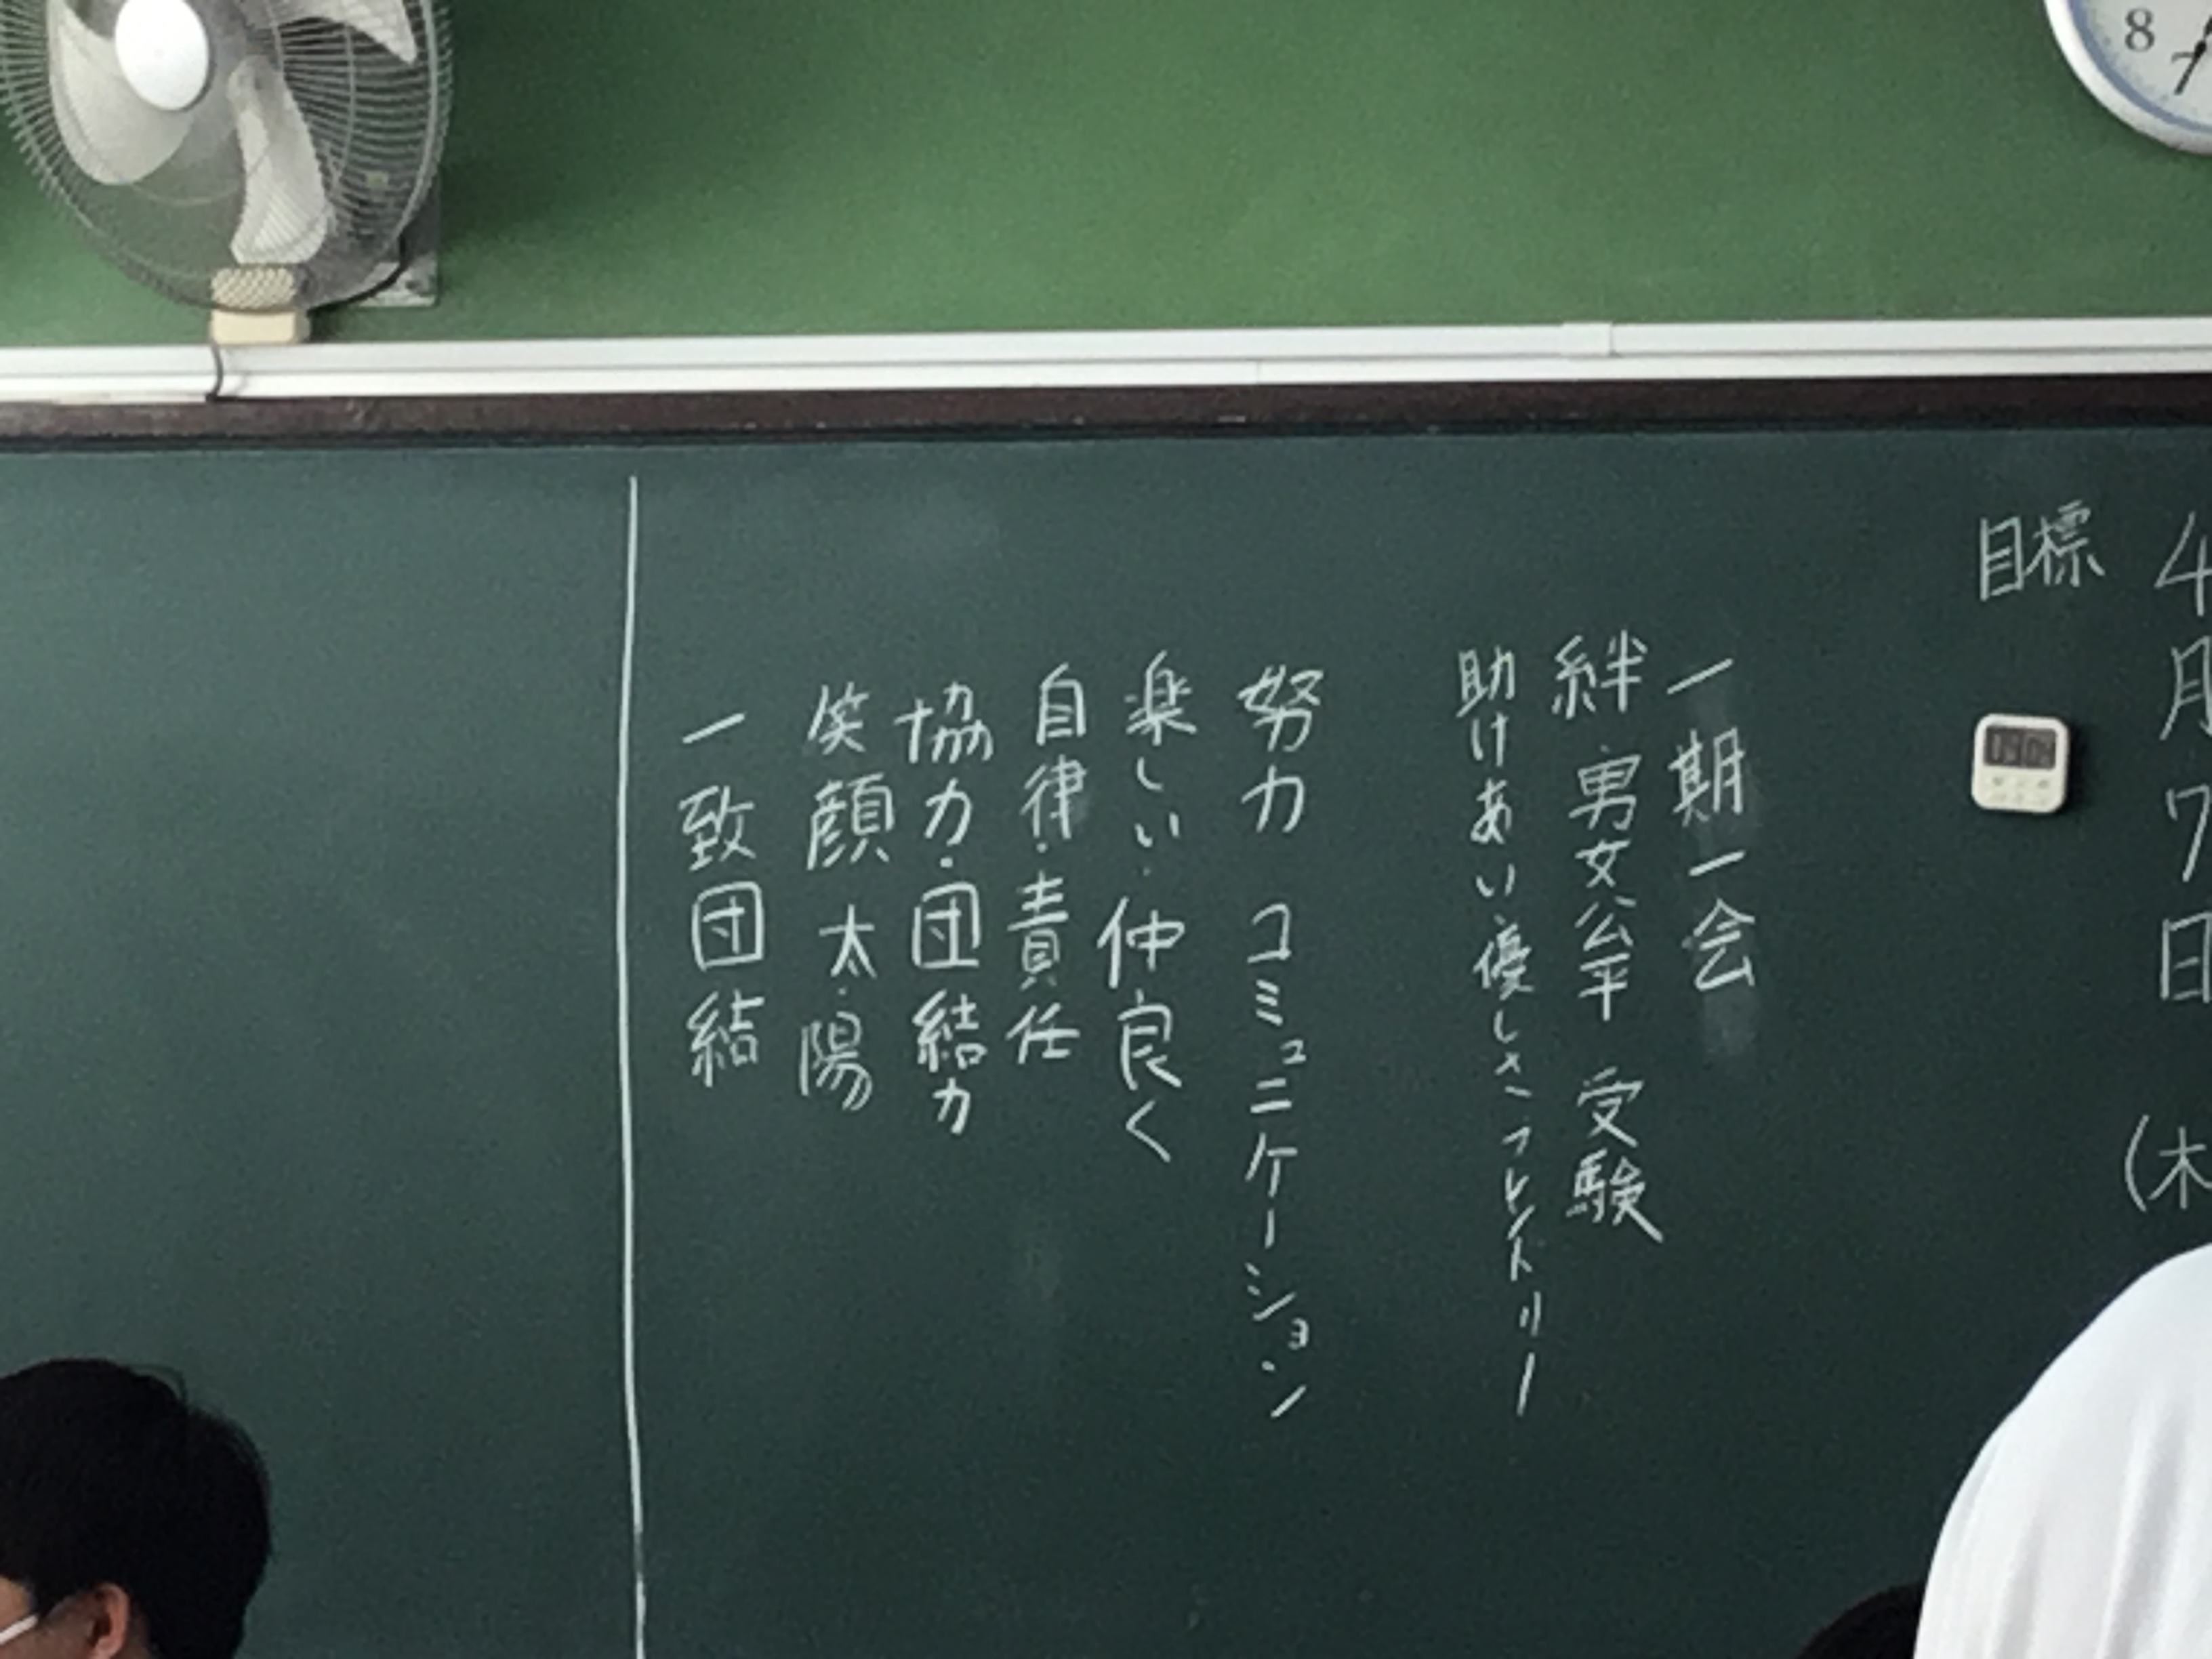 4月7日(木
目標
一期一会
絆 男女公平 受験
助けあい・優しさ フレンドリー
努力 コミュニケーション
楽しい・仲良く
自律・責任
協力・団結力
笑顔 太陽
一致団結
8
7